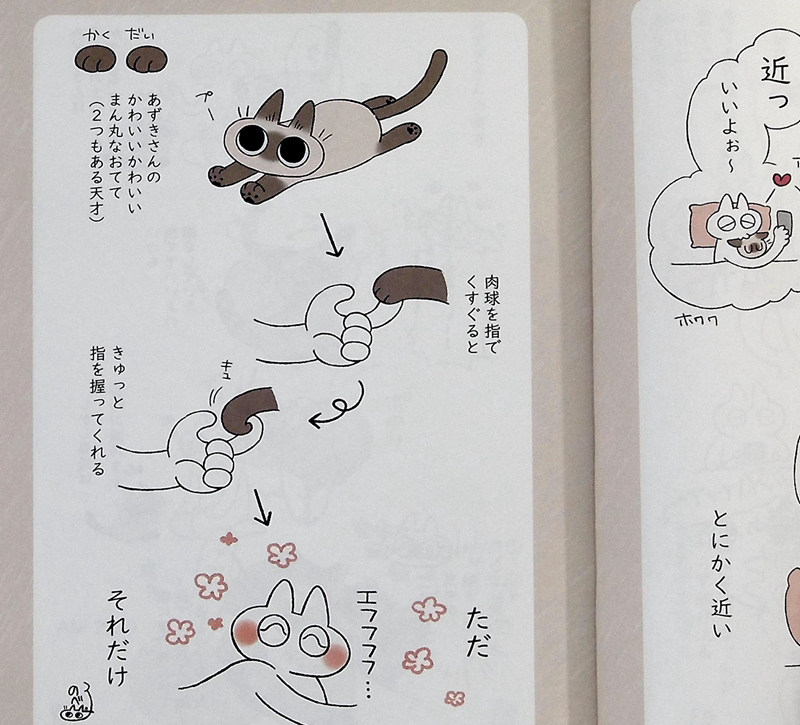 近っ
いいよぉ〜
ホワワ
とにかく近い
かく だい
あずきさんの
かわいいかわいい
まん丸なおてて
（２つもある天才）
プー
肉球を指で
くすぐると
キュ
きゅっと
指を握ってくれる
ただ
エフフフ…
それだけ